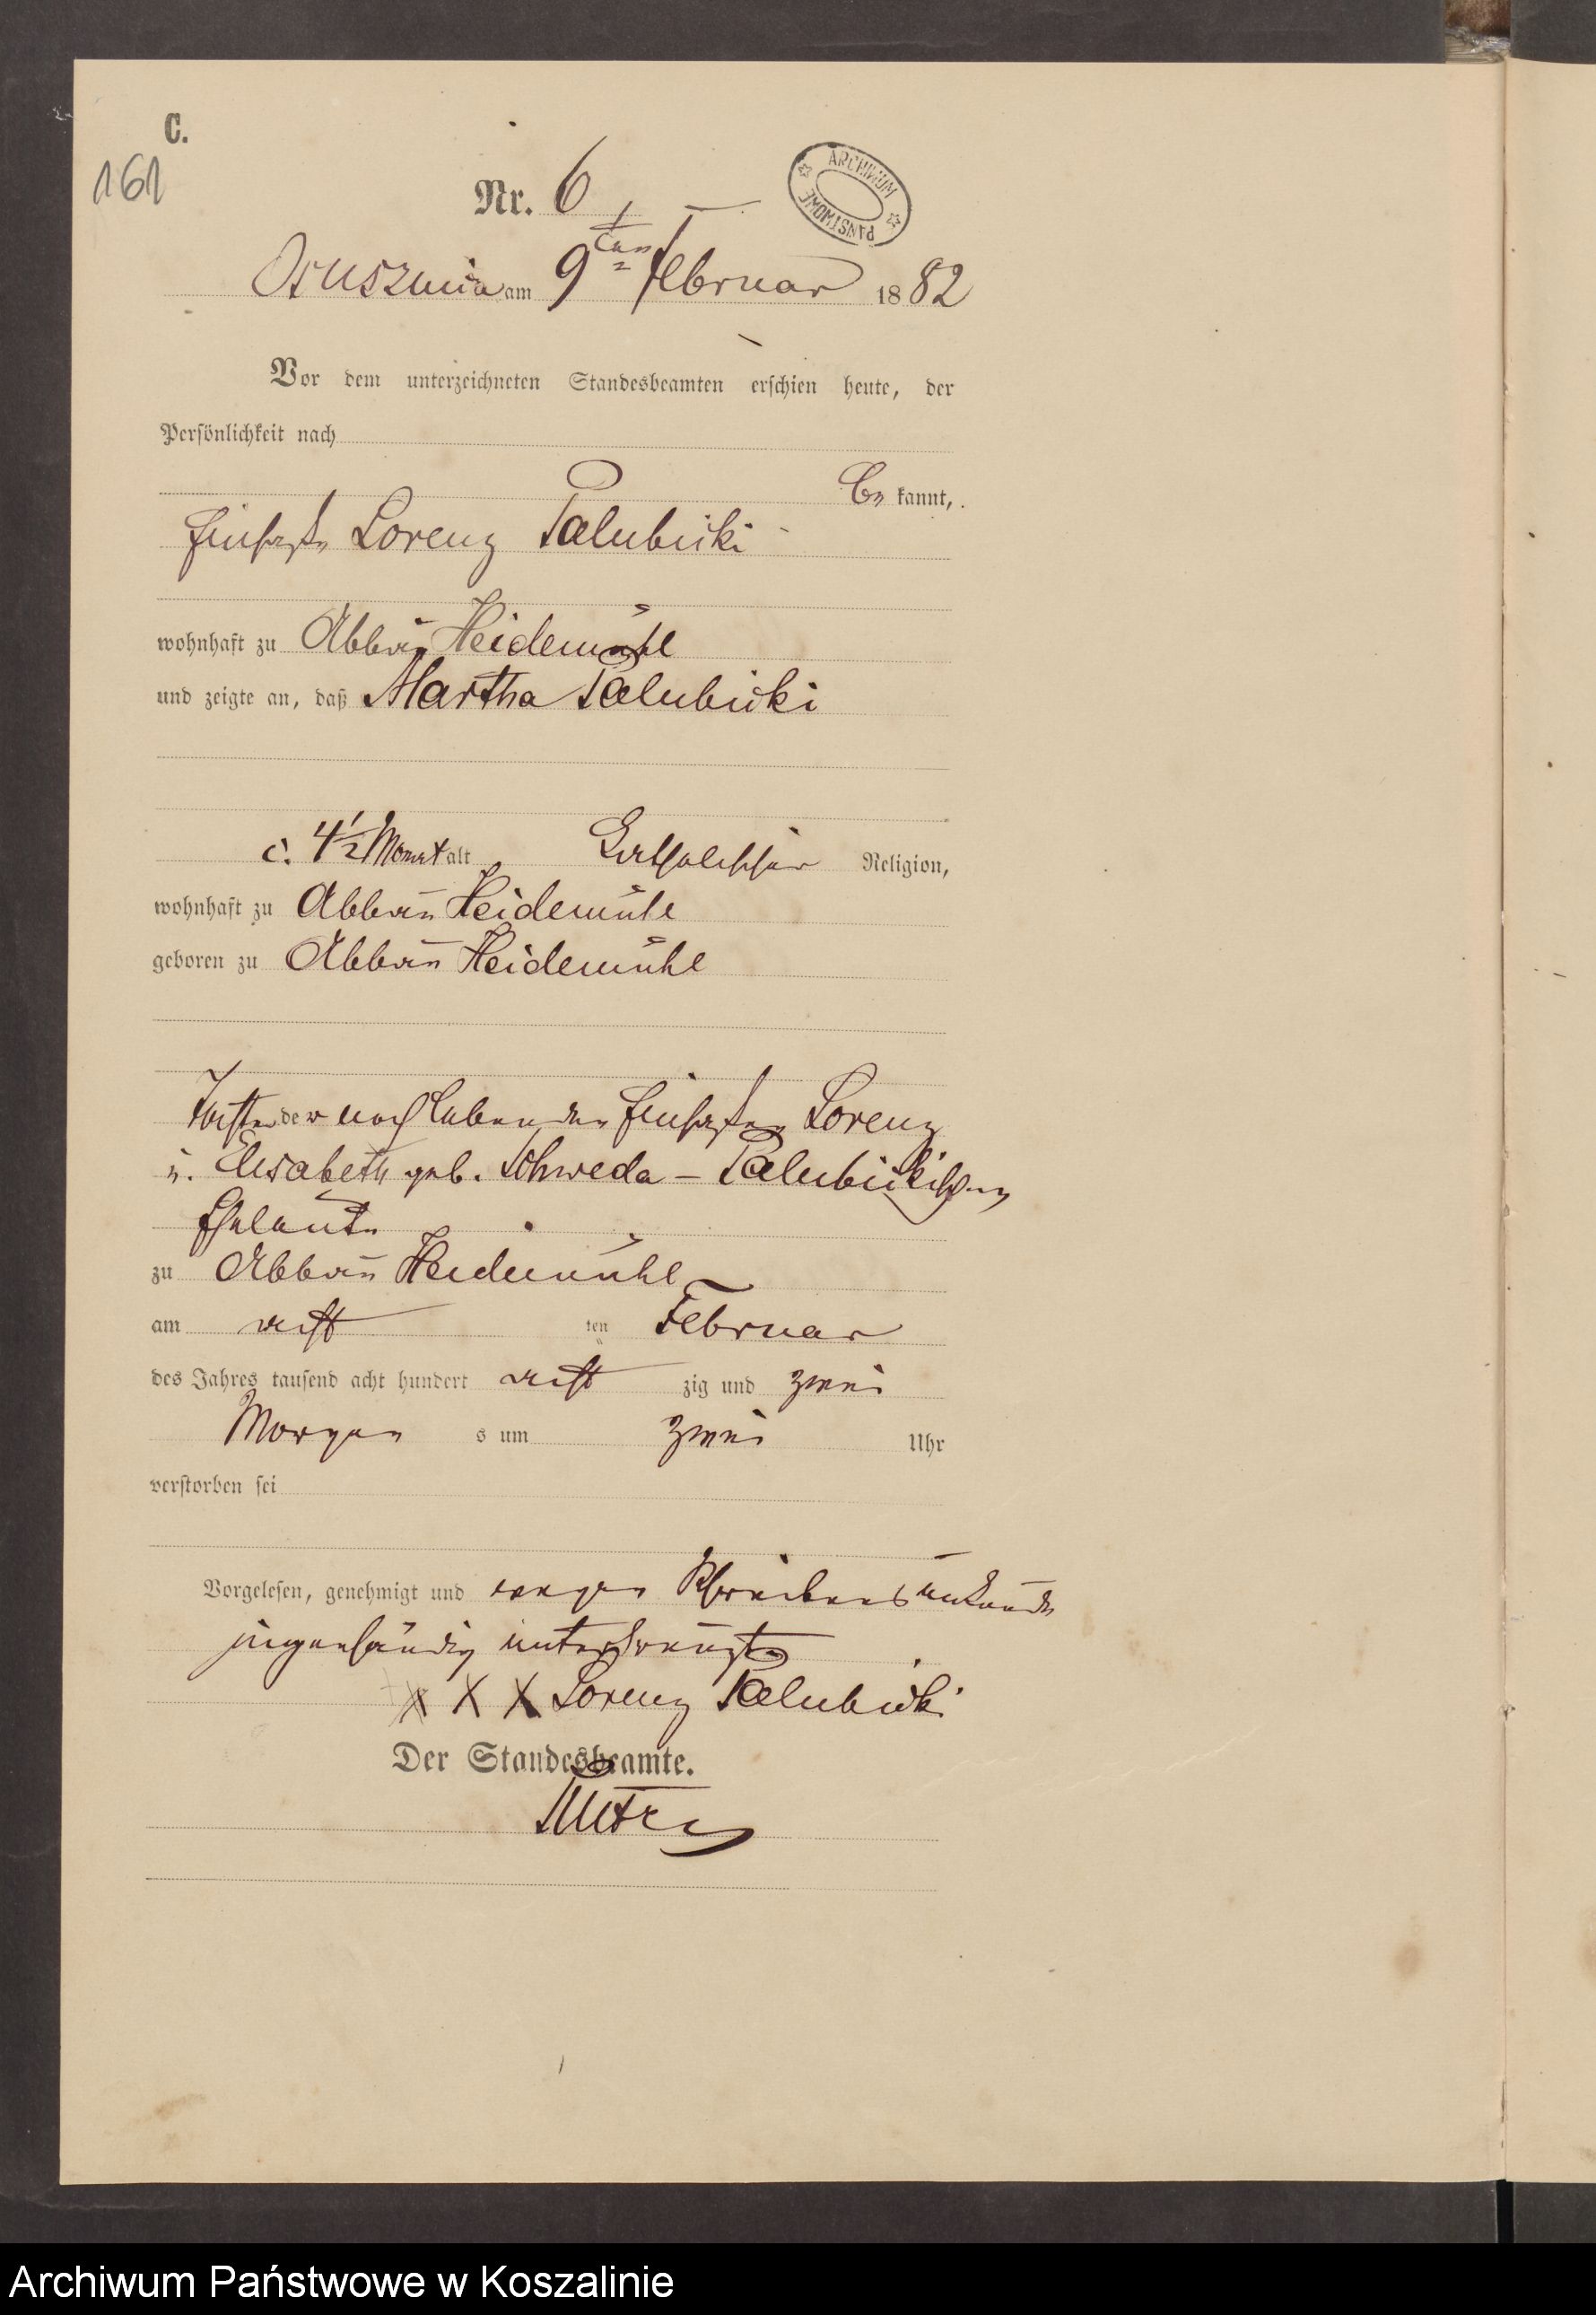 C.
161
Nr. 6
ARCHIWUM PAŃSTWOWE
Osuszniza am 9ten Februar 1882
Vor dem unterzeichneten Standesbeamten erschien heute, der
Persönlichkeit nach
be kannt,
Einsasse Lorenz Palubicki
wohnhaft zu Abbau Heidemühl
und zeigte an, daß Martha Palubicki
c. 4 1/2 Monat alt Katholischer Religion,
wohnhaft zu Abbau Heidemühl
geboren zu Abbau Heidemühl
Tochter der noch lebenden Einsassen Lorenz
u. Elisabeth geb. Schweda - Palubickischen
Eheleute
zu Abbau Heidemühl
am acht ten Februar
des Jahres tausend acht hundert acht zig und zwei
Morgen s um zwei Uhr
verstorben sei
Vorgelesen, genehmigt und wegen Schreibensunkunde
eigenhändig unterkreuzt
X X X Lorenz Palubicki
Der Standesbeamte.
Archiwum Państwowe w Koszalinie